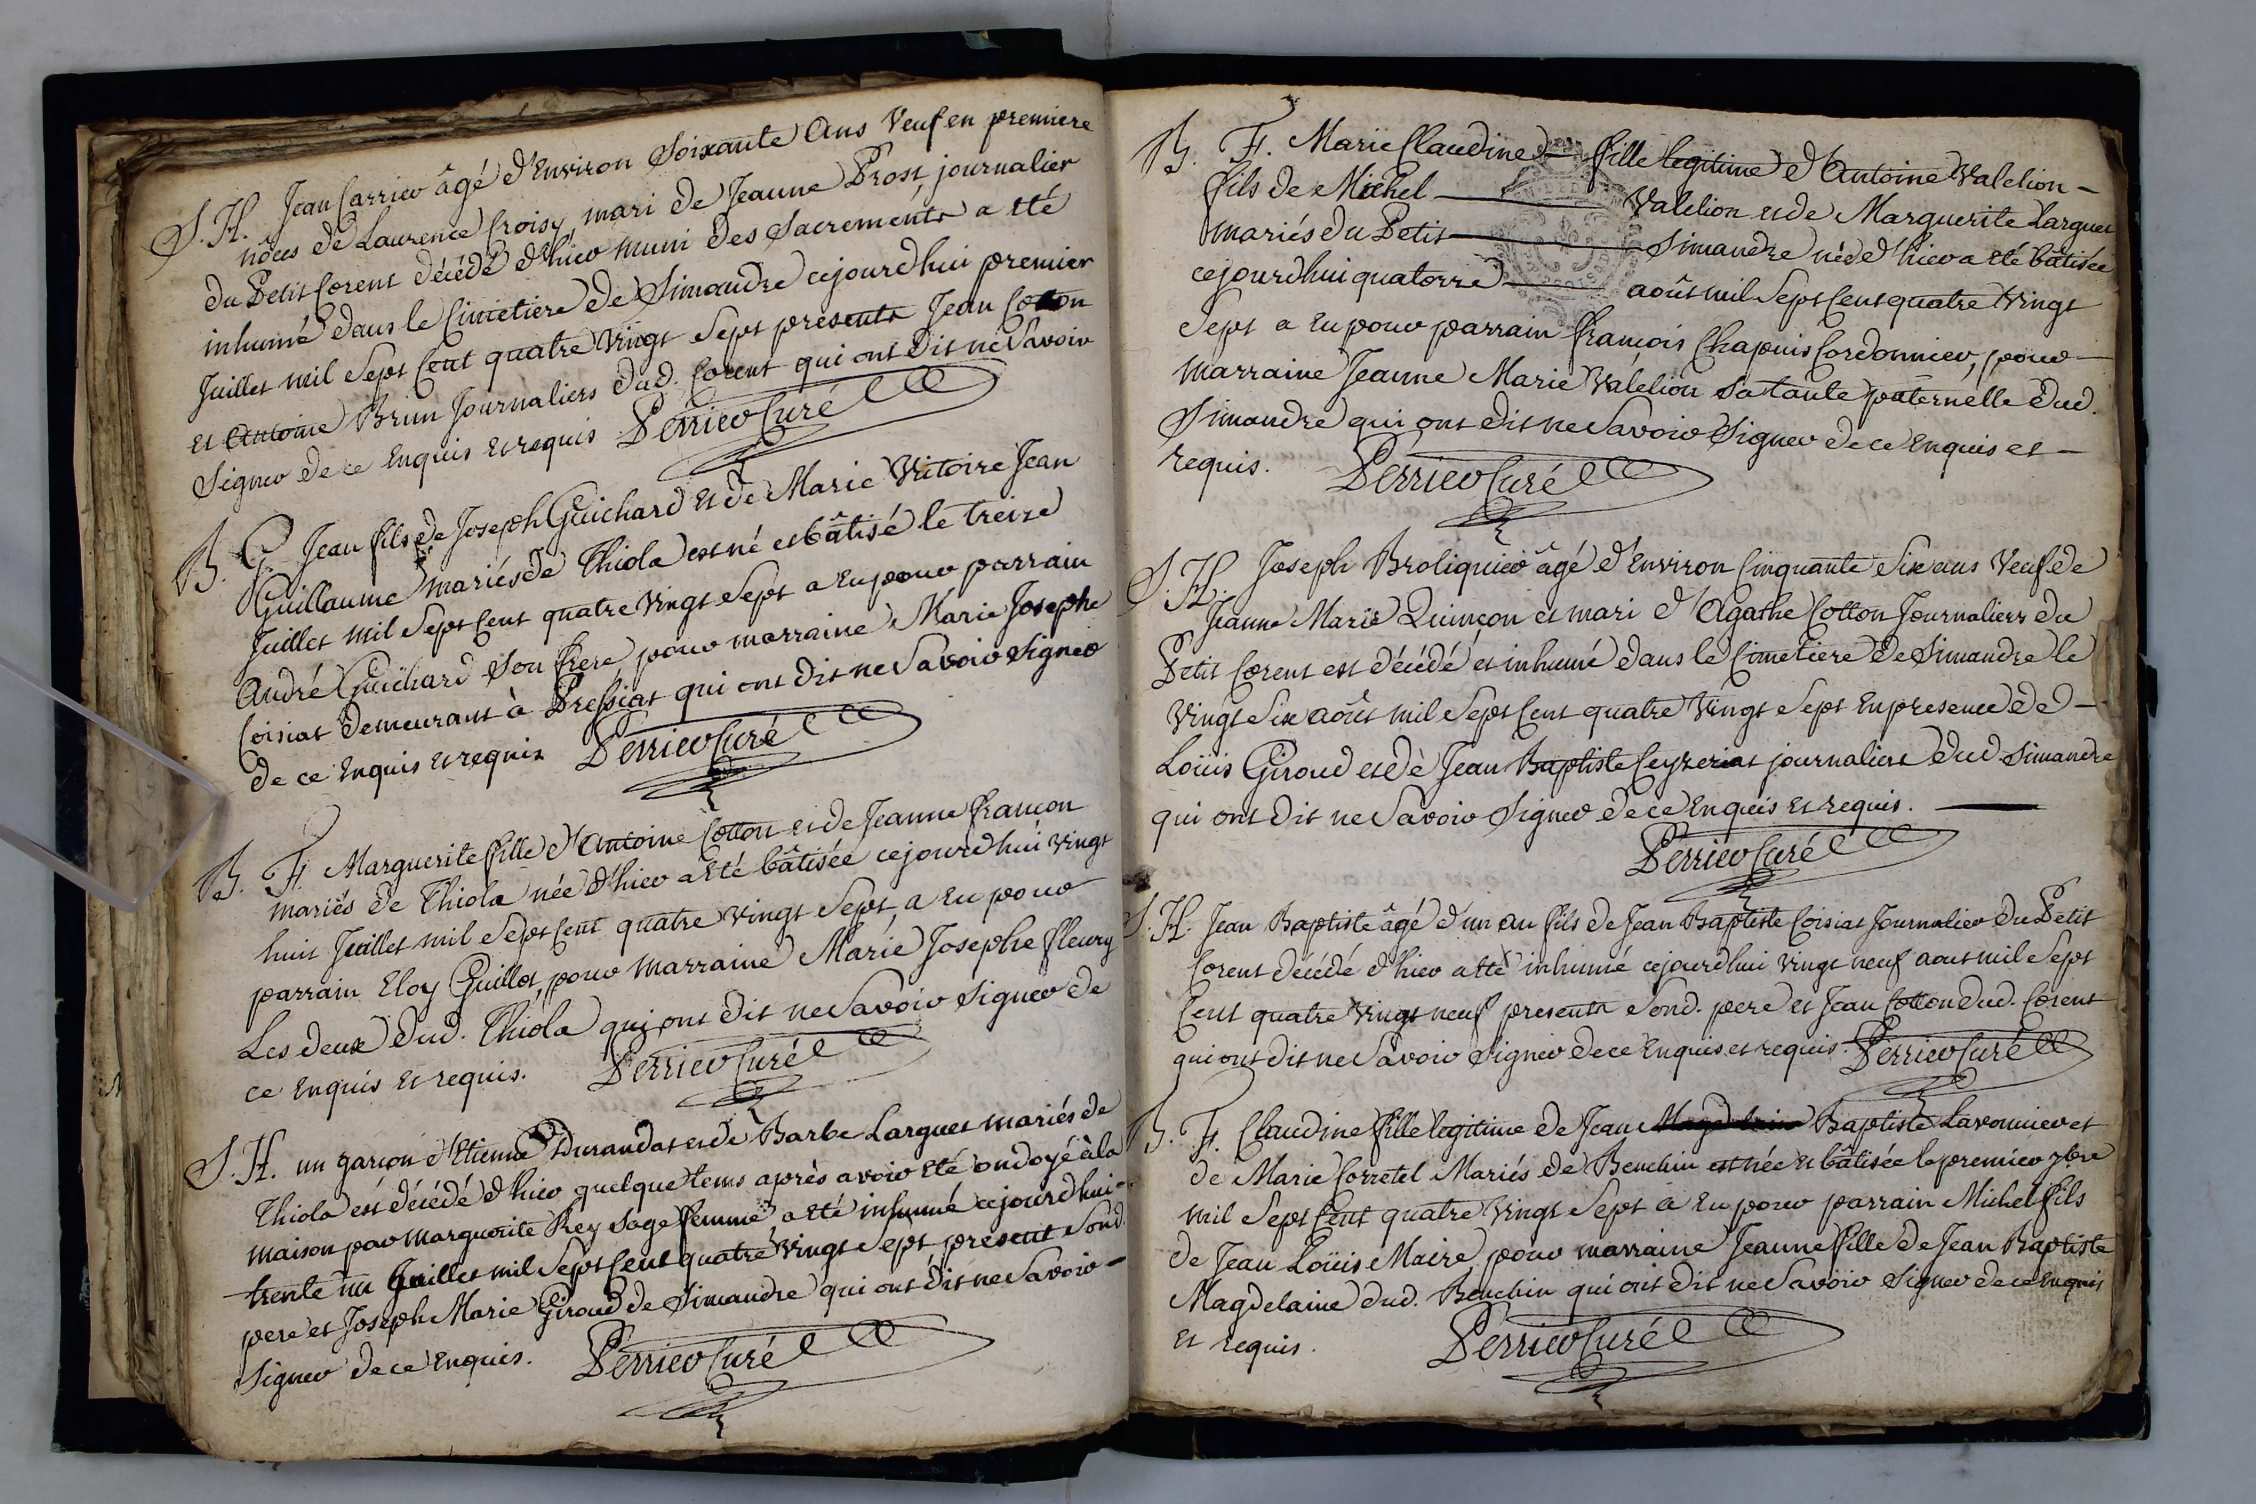 S. H. Jean Carrier âgé d'Environ Soixante Ans Veuf en premiere
nôces de Laurence Croisy, mari de Jeanne Prost, journalier
du Petit Corent décédé d'hier muni des Sacrements a eté
inhumé dans le Cimetiere de Simandre cejourdhui premier
Juillet mil Sept Cent quatre Vingt Sept presents Jean Cotton
et Antoine Brun Journaliers dud. Corent qui ont dit ne Savoir
Signer de ce Enquis et requis Perrier Curé
B. G. Jean fils de Joseph Guichard et de Marie Vitoire Jean
Guillaume mariés de Thiola est né et bâtisé le treize
Juillet mil Sept Cent quatre Vingt Sept a Eu pour parrain
André Guichard Son frere, pour marraine Marie Josephe
Coisiat demeurant à Pressiat qui ont dit ne Savoir Signer
de ce Enquis et requis Perrier Curé
B. F. Marguerite fille d'Antoine Cotton et de Jeanne françon
mariés de Thiola née d'hier a eté bâtisée cejourdhui vingt
huit Juillet mil Sept Cent quatre vingt Sept, a Eu pour
parrain Eloy Guillot, pour marraine Marie Josephe fleury
Les deux dud. Thiola qui ont dit ne Savoir Signer de
ce Enquis et requis. Perrier Curé
S. H. un garçon d'Etienne Durandat et de Barbe Larguet mariés de
Thiola est décédé d'hier quelque tems après avoir eté ondoyé à la
maison par Marguerite Rey Sage femme, a eté inhumé cejourdhui
trente un Juillet mil Sept Cent quatre Vingt Sept present Sond.
pere et Joseph Marie Giroud de Simandre qui ont dit ne Savoir
Signer de ce Enquis. Perrier Curé
B. F. Marie Claudine fille legitime d'Antoine Valelion
fils de Michel Valelion et de Marguerite Larguet
mariés du Petit Simandre née d'hier a eté bâtisée
cejourdhui quatorze août mil Sept Cent quatre Vingt
Sept a Eu pour parrain françois Chapuis Cordonnier, pour
marraine Jeanne Marie Valelion Sa tante paternelle dud.
Simandre qui ont dit ne Savoir Signer de ce Enquis et
requis. Perrier Curé
S. H. Joseph Broliquier âgé d'Environ Cinquante Six ans Veuf de
Jeanne Marie Quinçon et mari d'Agathe Cotton Journaliers du
Petit Corent est décédé et inhumé dans le Cimetiere de Simandre le
Vingt Six août mil Sept Cent quatre Vingt Sept En presence de
Loüis Giroud et de Jean Baptiste Ceyzeriat journaliers dud Simandre
qui ont dit ne Savoir Signer de ce Enquis et requis.
Perrier Curé
S. H. Jean Baptiste âgé d'un an fils de Jean Baptiste Coisiat Journalier du Petit
Corent décédé d'hier a eté inhumé cejourdhui vingt neuf aout mil Sept
Cent quatre Vingt neuf presents Sond. pere et Jean Cotton dud. Corent
qui ont dit ne Savoir Signer de ce Enquis et requis. Perrier Curé
B. F. Claudine fille legitime de Jean Baptiste Lavonnier et
de Marie Corretel Mariés de Benchin est née et bâtisée le premier 7bre
mil Sept Cent quatre Vingt Sept a Eu pour parrain Michel fils
de Jean Loüis Maire, pour marraine Jeanne fille de Jean Baptiste
Magdelaine dud. Benchin qui ont dit ne Savoir Signer de ce Enquis
et requis. Perrier Curé